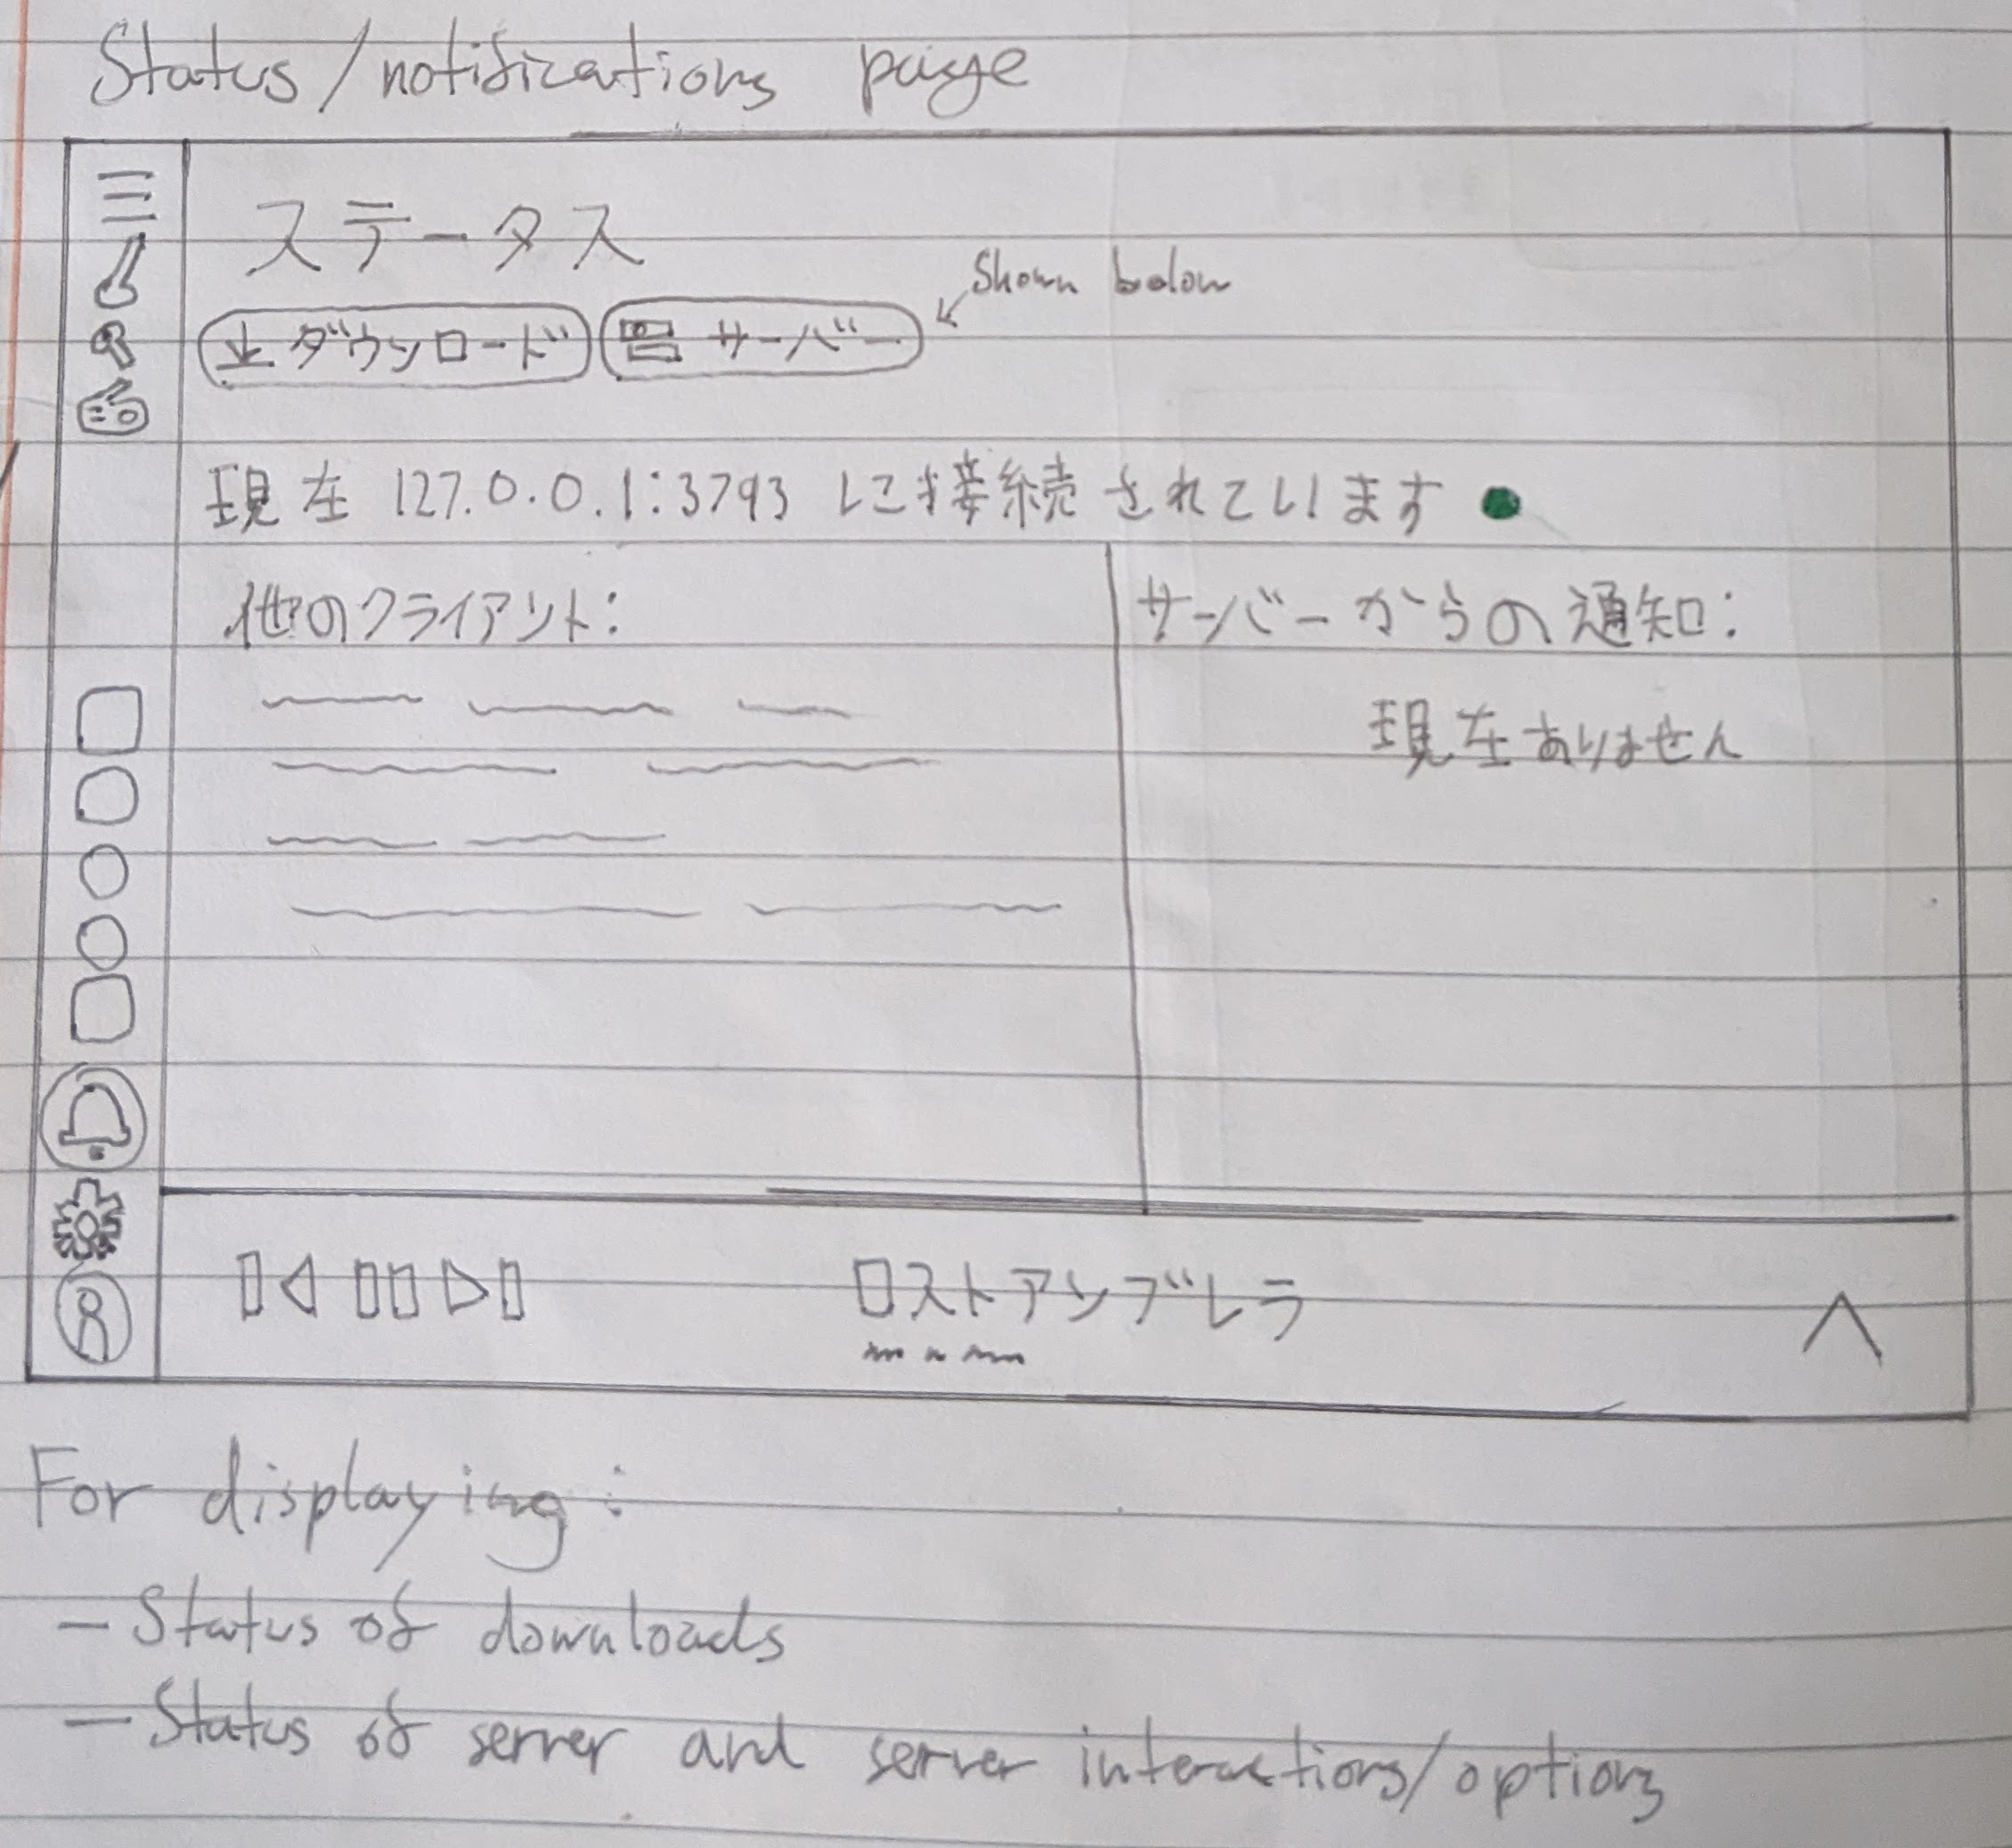 Status/notifications page
ステータス
Shown below
ダウンロード サーバー
現在 127.0.0.1:3793 に接続されています
他のクライアント:
サーバーからの通知:
現在ありません
ロストアンブレラ
For displaying:
- Status of downloads
- Status of server and server interactions/options